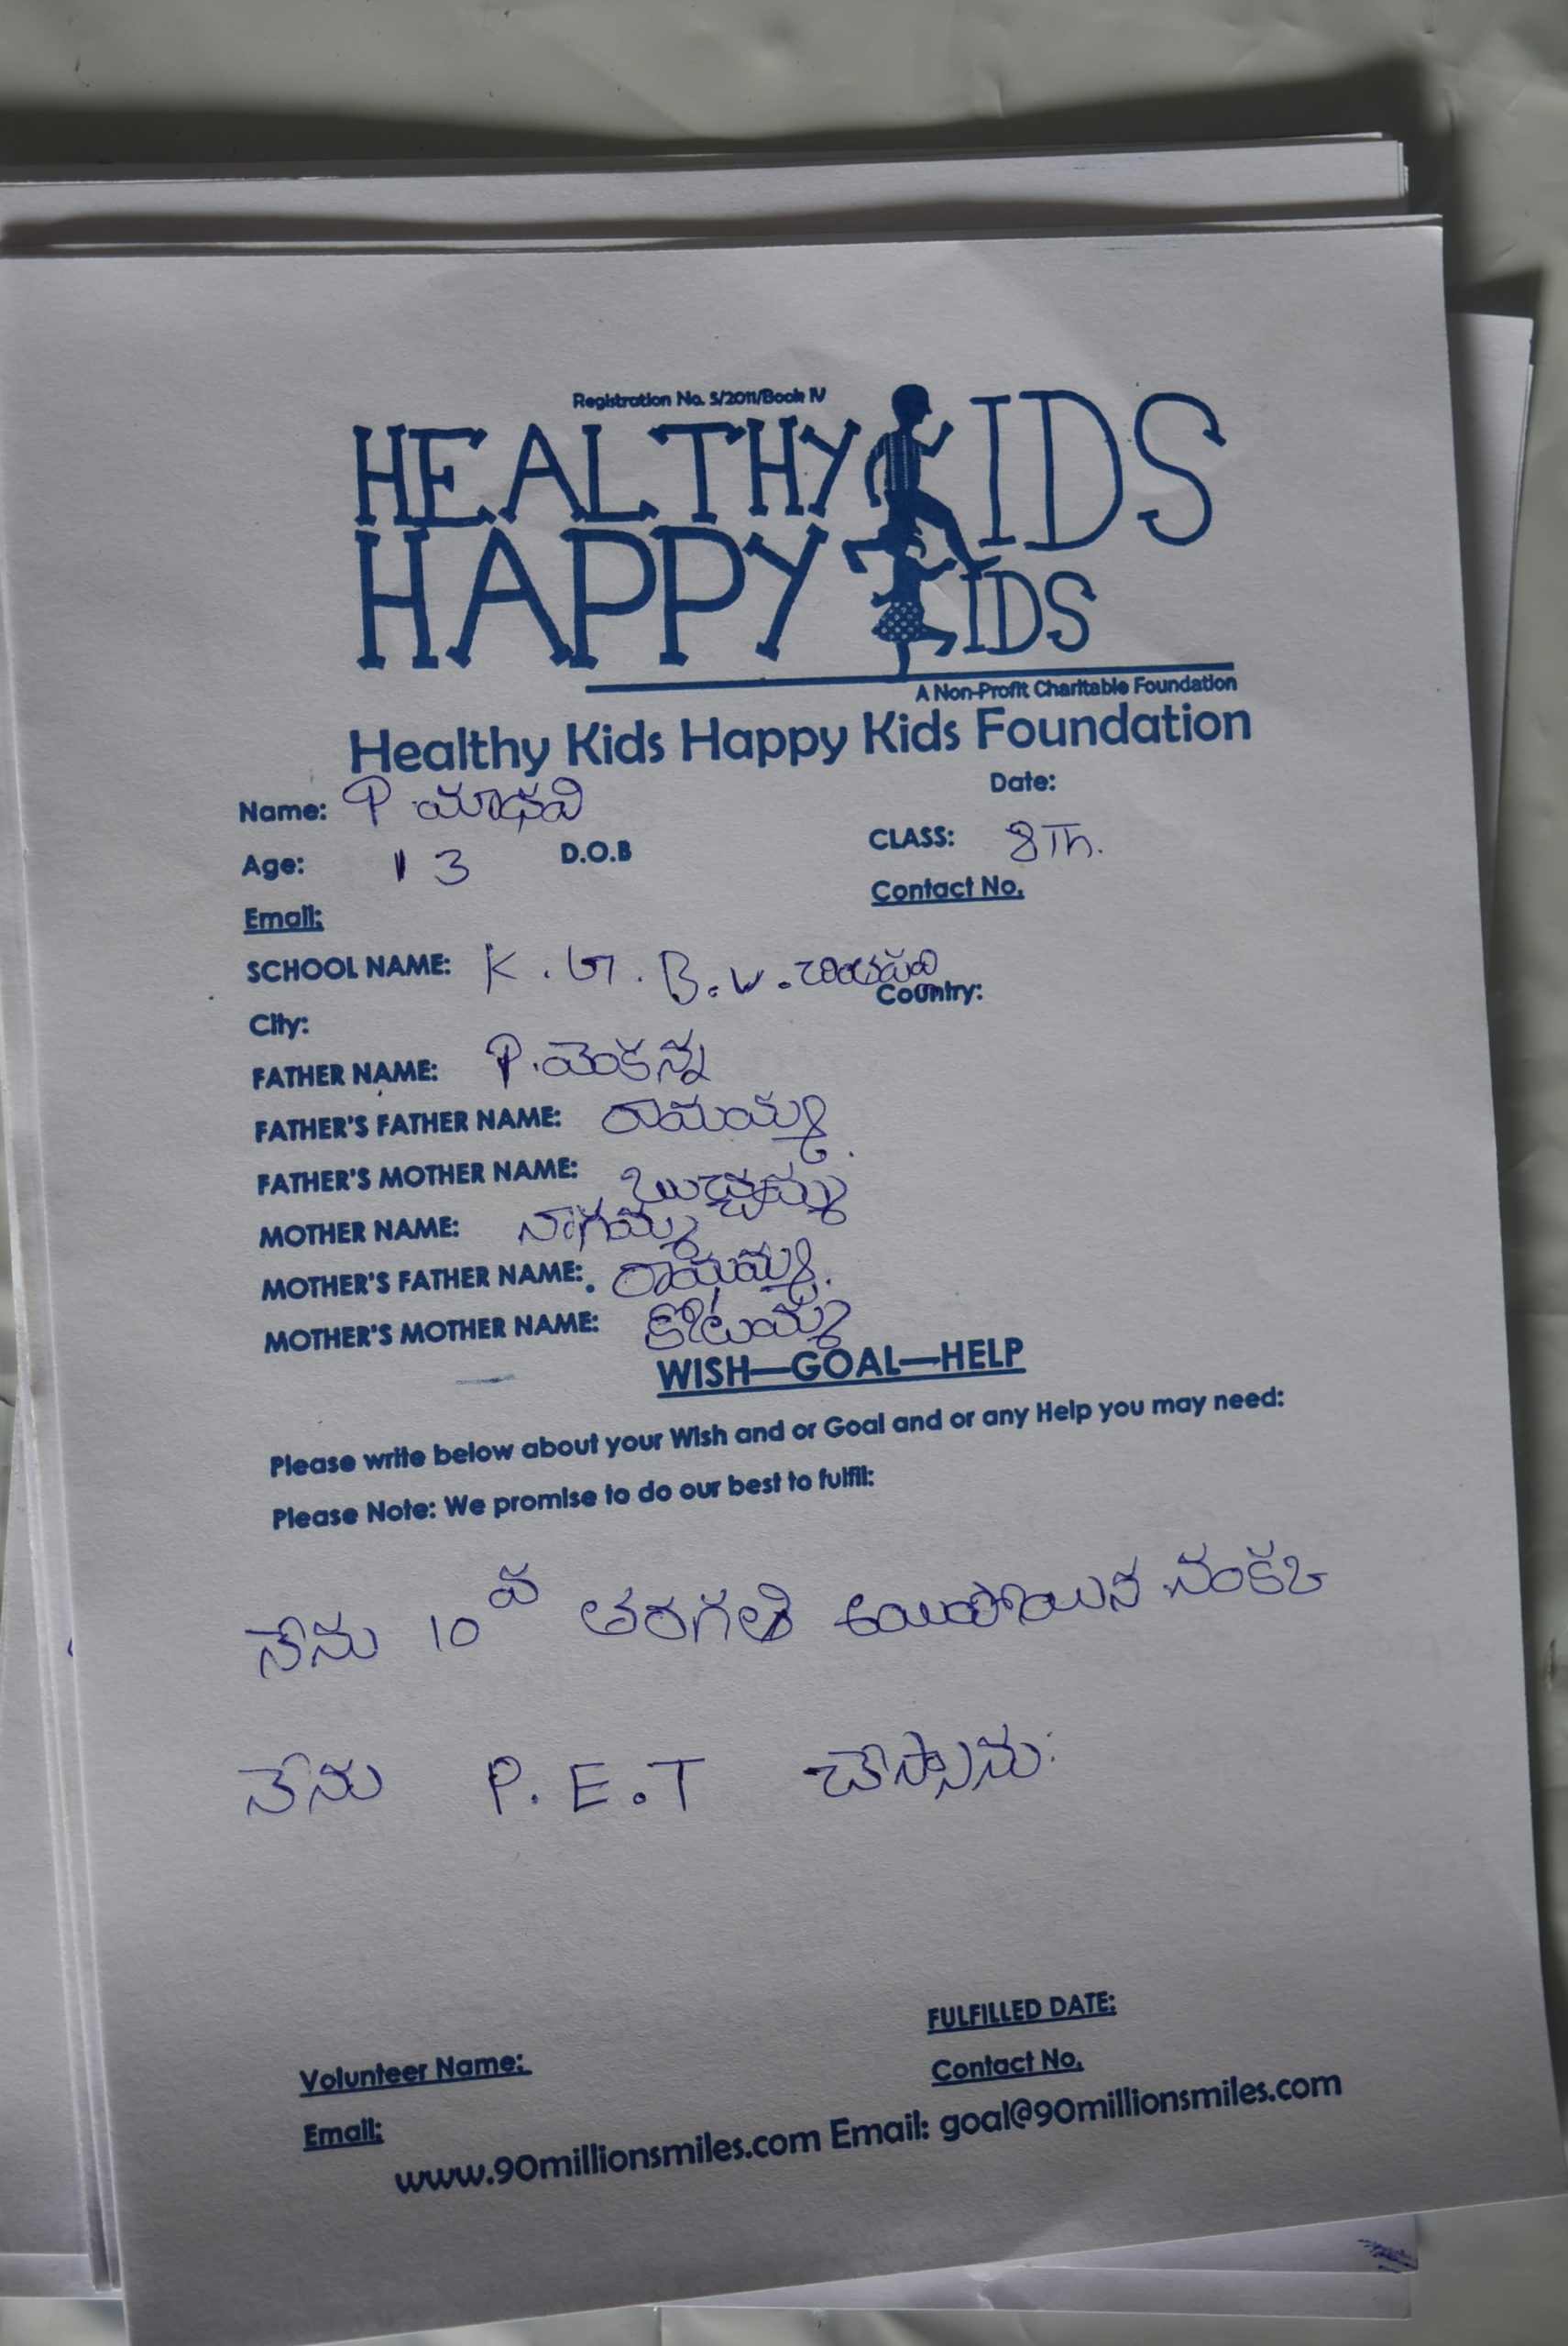 Registration No. 5/2011/Book IV
HEALTHY KIDS
HAPPY KIDS
A Non-Profit Charitable Foundation
Healthy Kids Happy Kids Foundation
Name: P మాధవి Date:
Age: 13 D.O.B CLASS: 8Th.
Email: Contact No.
SCHOOL NAME: K.G.B.V.
City: Country:
FATHER NAME: P.వెంకన్న
FATHER'S FATHER NAME: రామయ్య.
FATHER'S MOTHER NAME: బుచ్చమ్మ
MOTHER NAME: నాగమ్మ
MOTHER'S FATHER NAME:
MOTHER'S MOTHER NAME: కోటమ్మ
WISH—GOAL—HELP
Please write below about your Wish and or Goal and or any Help you may need:
Please Note: We promise to do our best to fulfil:
నేను 10వ తరగతి
నేను P.E.T చేస్తాను.
FULFILLED DATE:
Volunteer Name: Contact No.
Email:
www.90millionsmiles.com Email: goal@90millionsmiles.com